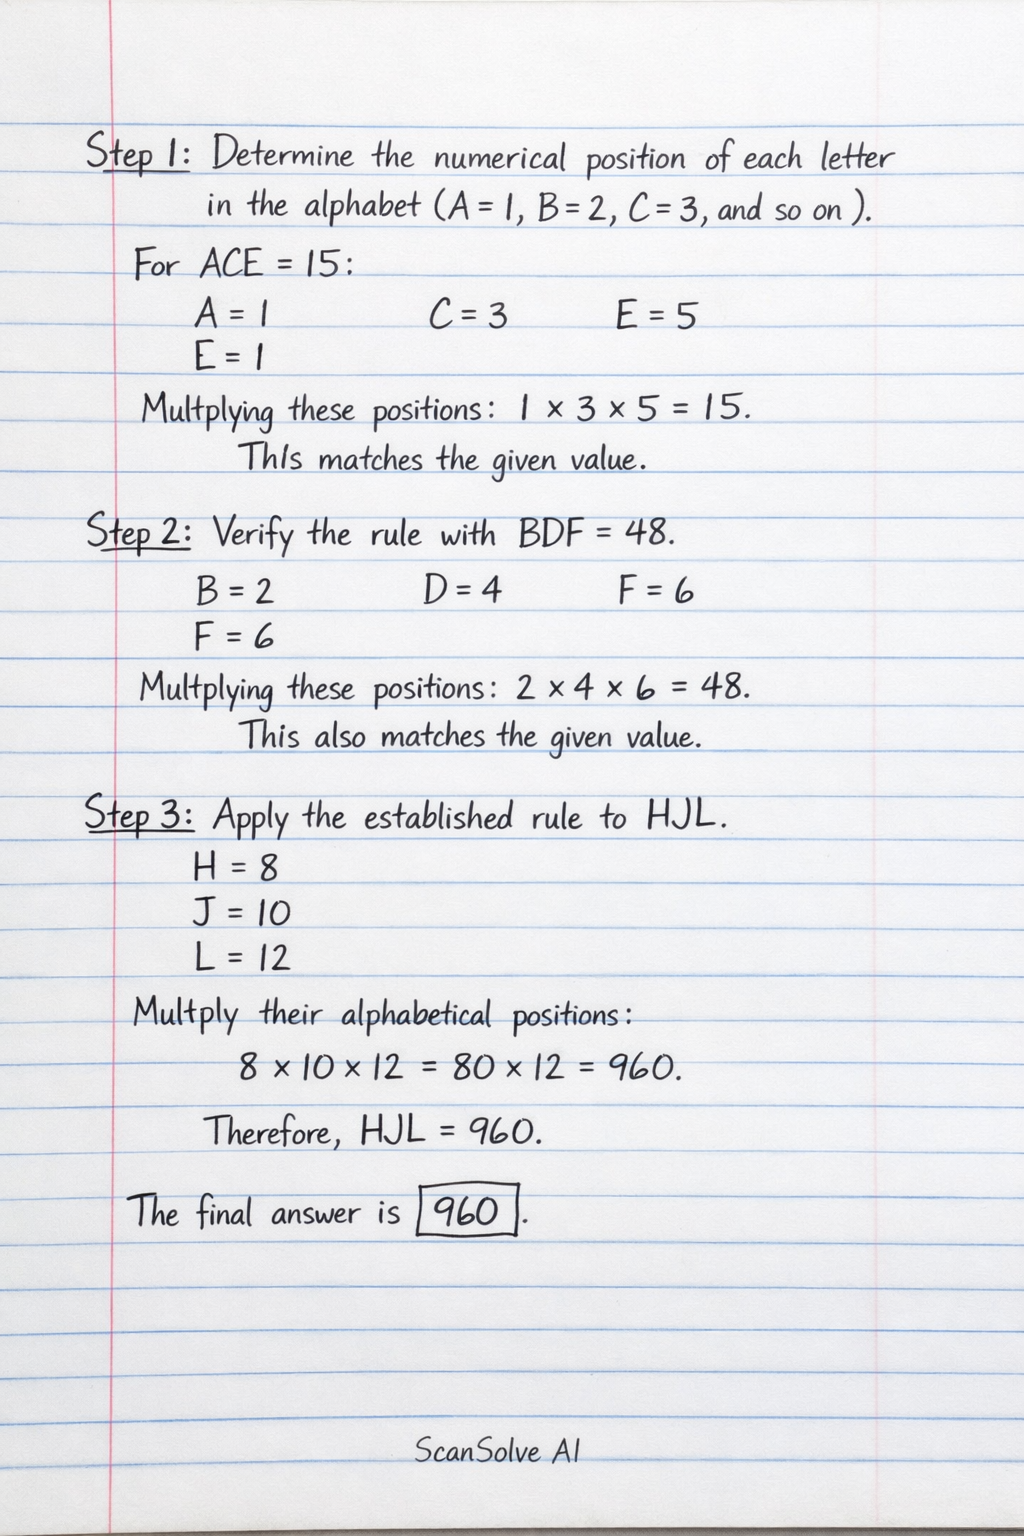 Step 1: Determine the numerical position of each letter
in the alphabet (A = 1, B = 2, C = 3, and so on ).
For ACE = 15:
A = 1 C = 3 E = 5
E = 1
Multplying these positions: 1 × 3 × 5 = 15.
ThIs matches the given value.
Step 2: Verify the rule with BDF = 48.
B = 2 D = 4 F = 6
F = 6
Multplying these positions: 2 × 4 × 6 = 48.
This also matches the given value.
Step 3: Apply the established rule to HJL.
H = 8
J = 10
L = 12
Multply their alphabetical positions:
8 × 10 × 12 = 80 × 12 = 960.
Therefore, HJL = 960.
The final answer is 960.
ScanSolve AI